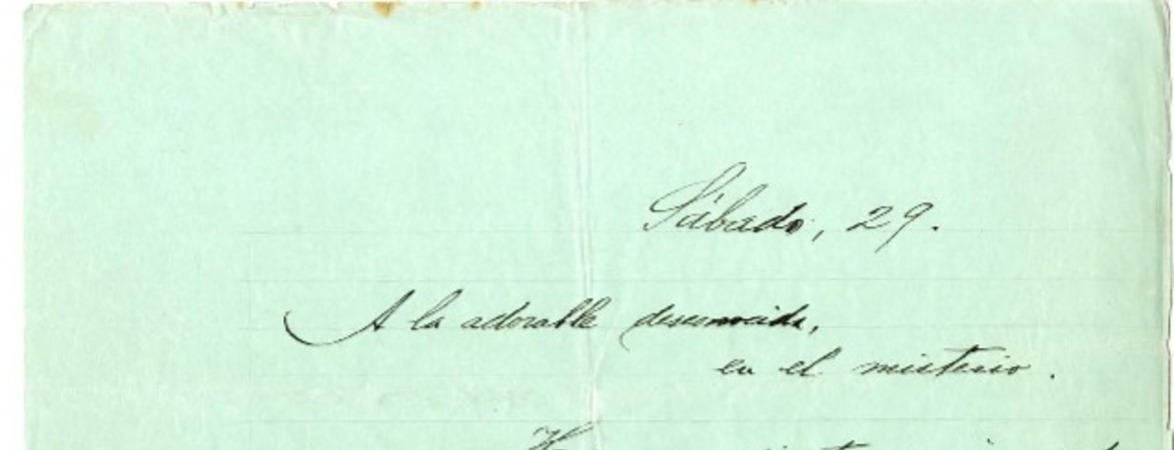 Sábado, 29.
A la adorable desconocida,
en el misterio.